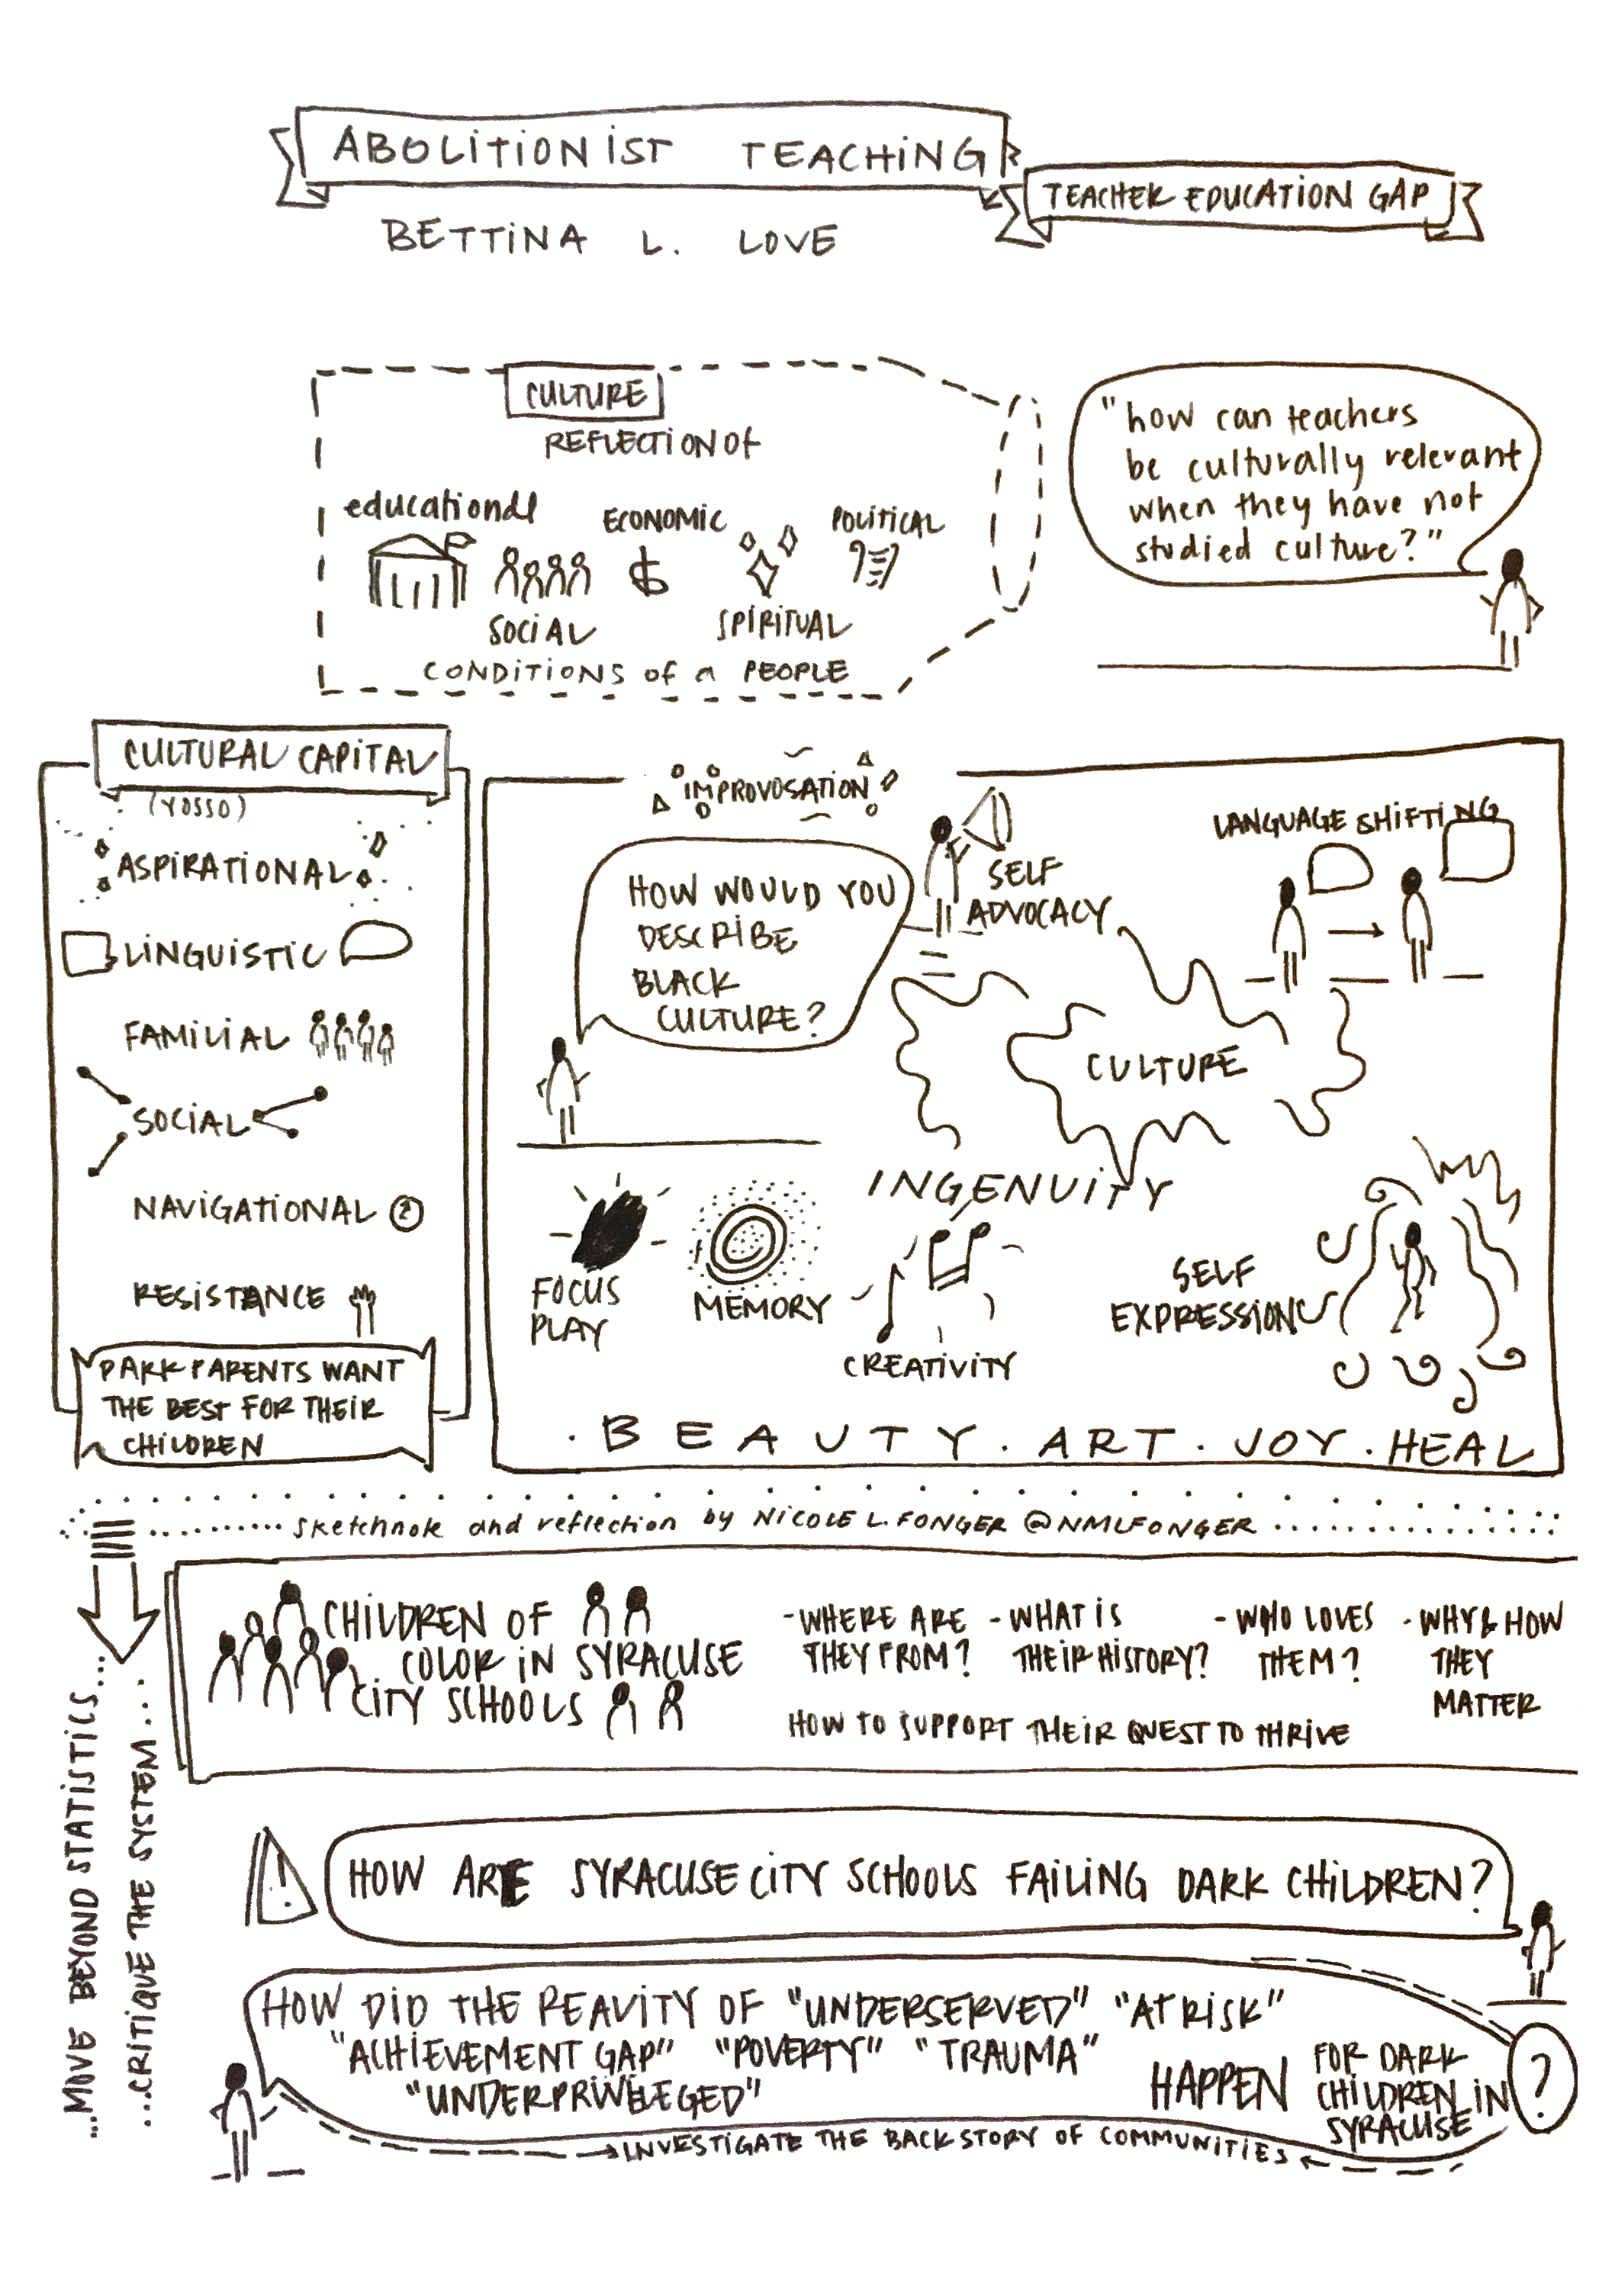 ABOLITIONIST TEACHING
TEACHER EDUCATION GAP
BETTINA L. LOVE
CULTURE
REFLECTION Of
educational
ECONOMIC
POLITICAL
SOCIAL
SPIRITUAL
CONDITIONS of a PEOPLE
"how can teachers
be culturally relevant
when they have not
studied culture?"
CULTURAL CAPITAL
(YOSSO)
ASPIRATIONAL
LINGUISTIC
FAMILIAL
SOCIAL
NAVIGATIONAL ?
RESISTANCE
DARK PARENTS WANT
THE BEST FOR THEIR
CHILDREN
IMPROVOSATION
HOW WOULD YOU
DESCRIBE
BLACK
CULTURE?
SELF
ADVOCACY
LANGUAGE SHIFTING
CULTURE
INGENUITY
FOCUS
PLAY
MEMORY
CREATIVITY
SELF
EXPRESSION
. BEAUTY . ART . JOY . HEAL
sketchnote and reflection by NICOLE L. FONGER @NMLFONGER
...MOVE BEYOND STATISTICS...
...CRITIQUE THE SYSTEM...
CHILDREN OF
COLOR IN SYRACUSE
CITY SCHOOLS
- WHERE ARE
THEY FROM?
- WHAT IS
THEIR HISTORY?
- WHO LOVES
THEM?
- WHY & HOW
THEY
MATTER
HOW TO SUPPORT THEIR QUEST TO THRIVE
!
HOW ARE SYRACUSE CITY SCHOOLS FAILING DARK CHILDREN?
HOW DID THE REALITY OF "UNDERSERVED" "AT RISK"
"ACHIEVEMENT GAP" "POVERTY" "TRAUMA"
"UNDERPRIVELEGED"
HAPPEN
FOR DARK
CHILDREN IN
SYRACUSE
?
INVESTIGATE THE BACKSTORY OF COMMUNITIES